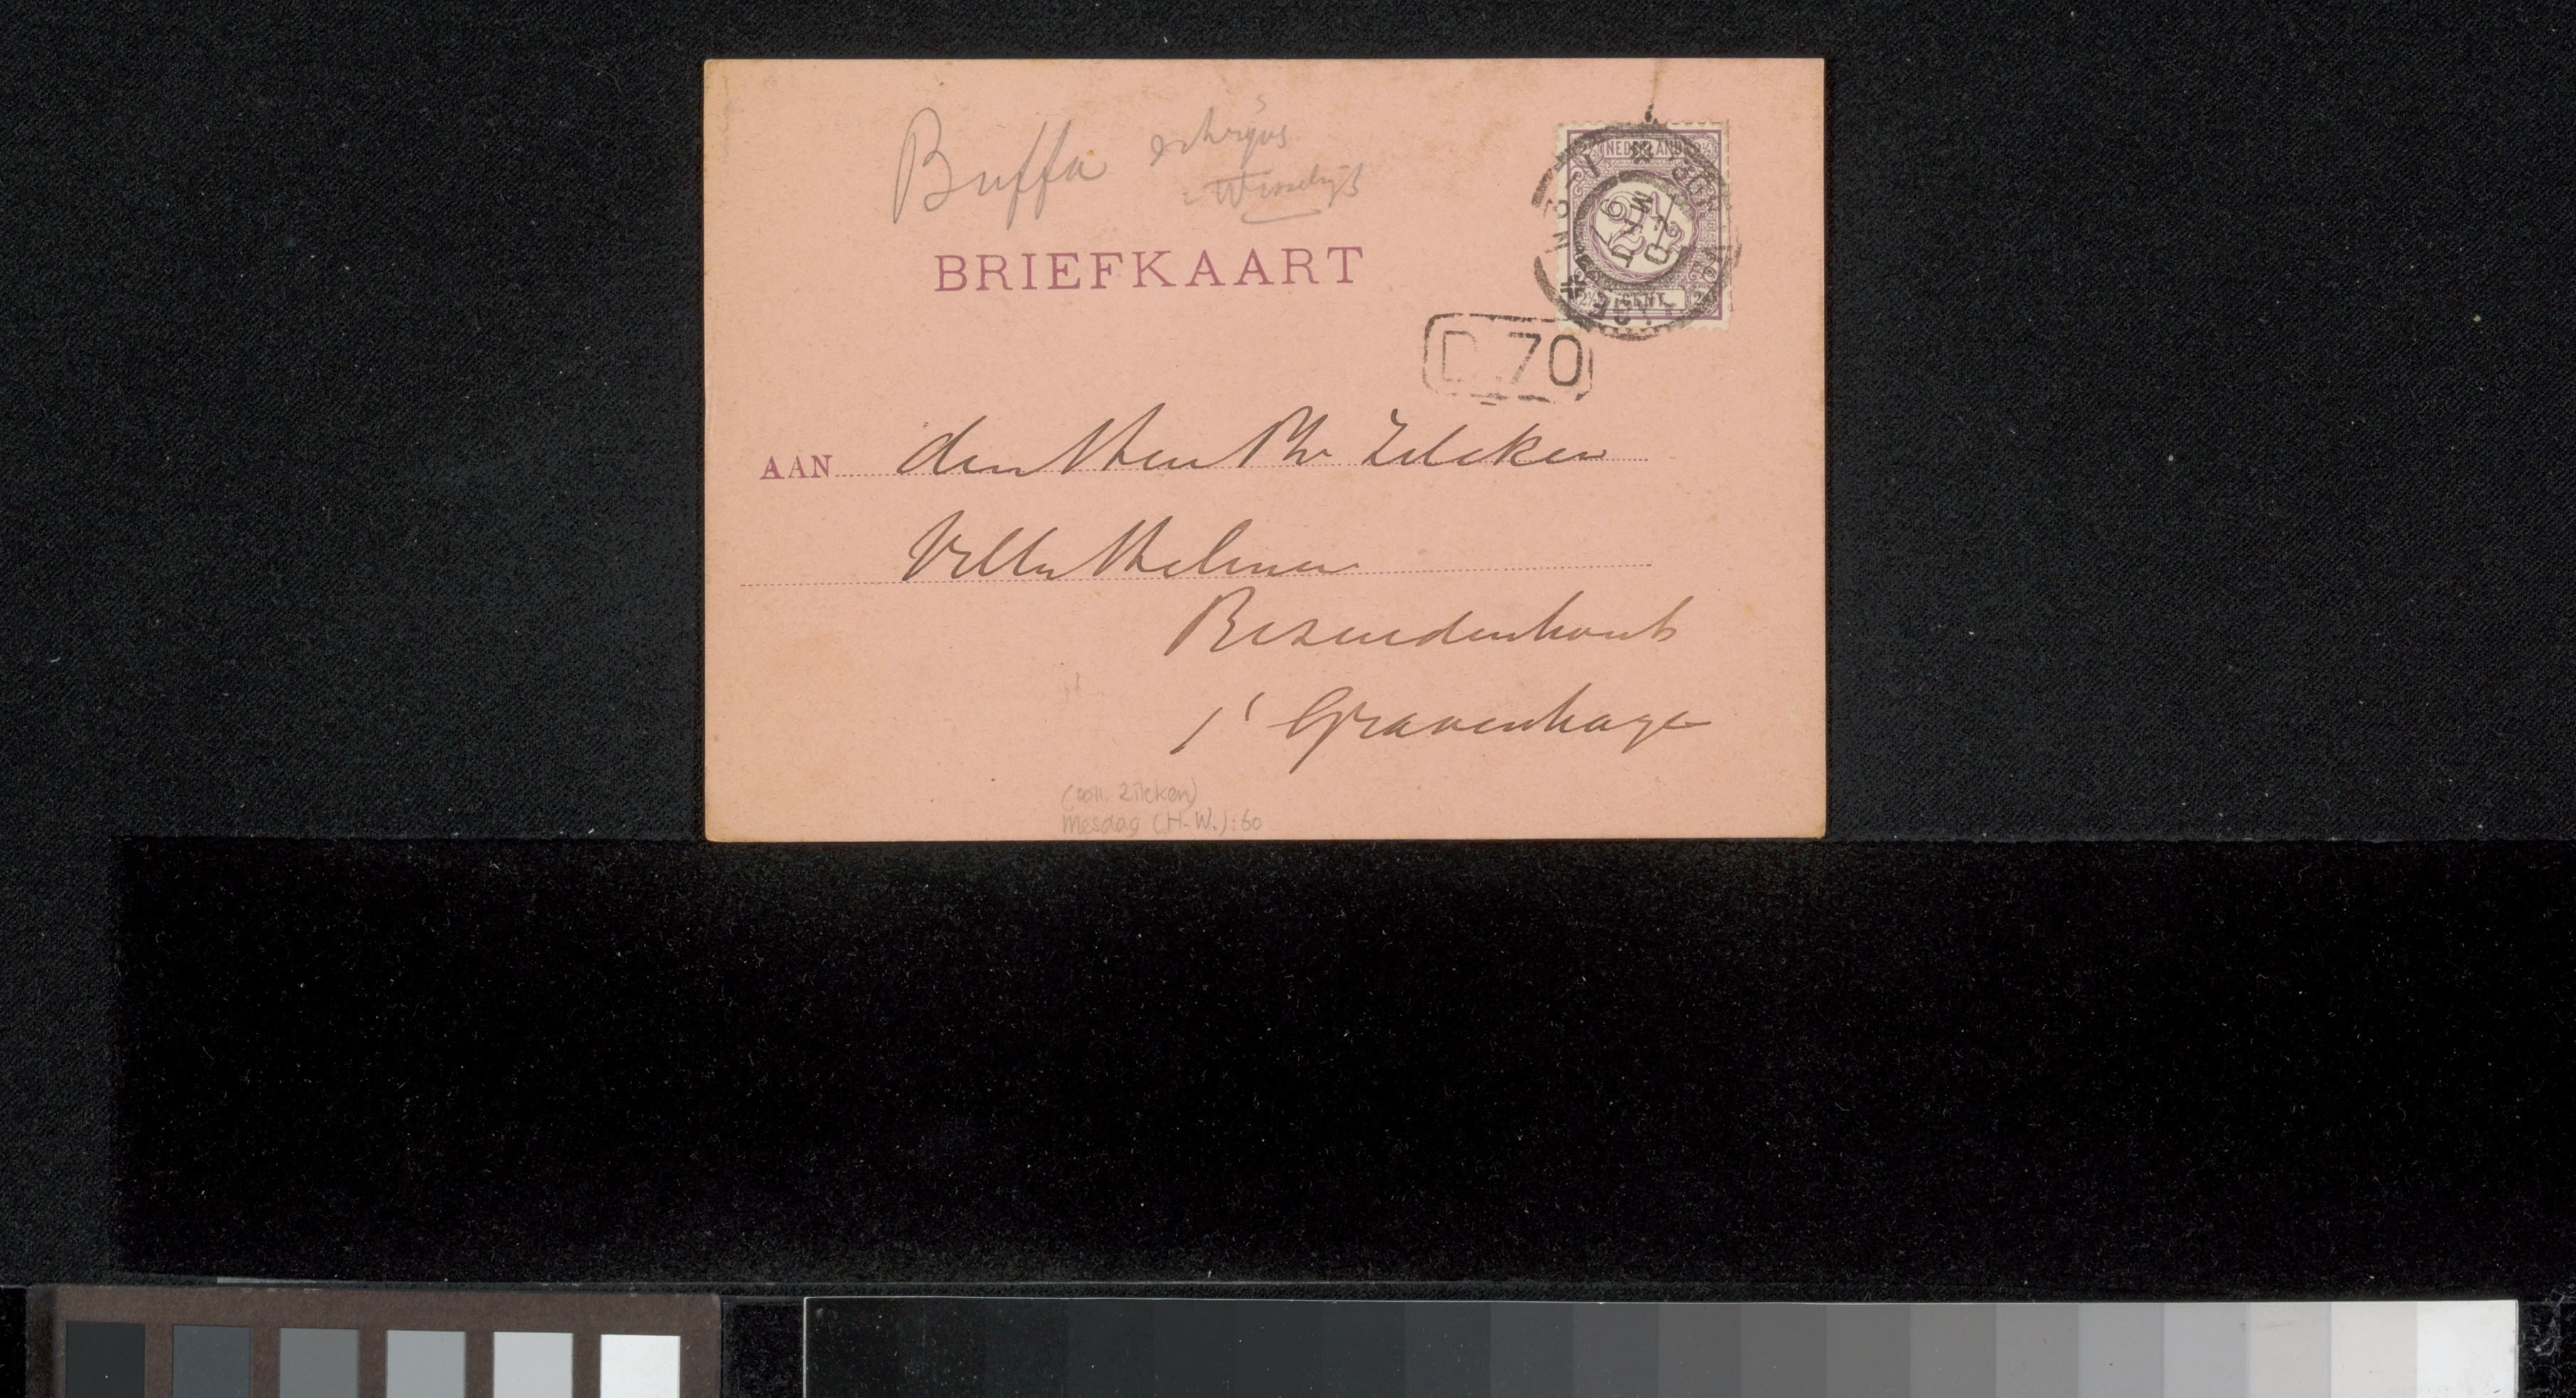 Buffa
BRIEFKAART
NEDERLAND
2½
CENT
D.70
AAN den Heer Ph Zilcken
Villa Helena
Bezuidenhout
s' Gravenhage
(coll. Zilcken)
Mesdag (H.W.):60